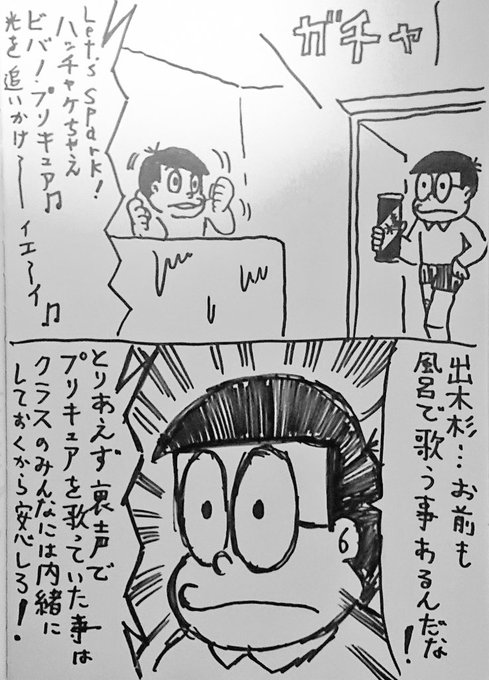 ガチャ
Let's Spark!
ハンチャケちゃえ
ビバ!プリキュア♫
光を追いかけ〜
イエ〜イ♫
出木杉…お前も
風呂で歌う事あるんだな!
とりあえず裏声で
プリキュアを歌っていた事は
クラスのみんなには内緒に
しておくから安心しろ!